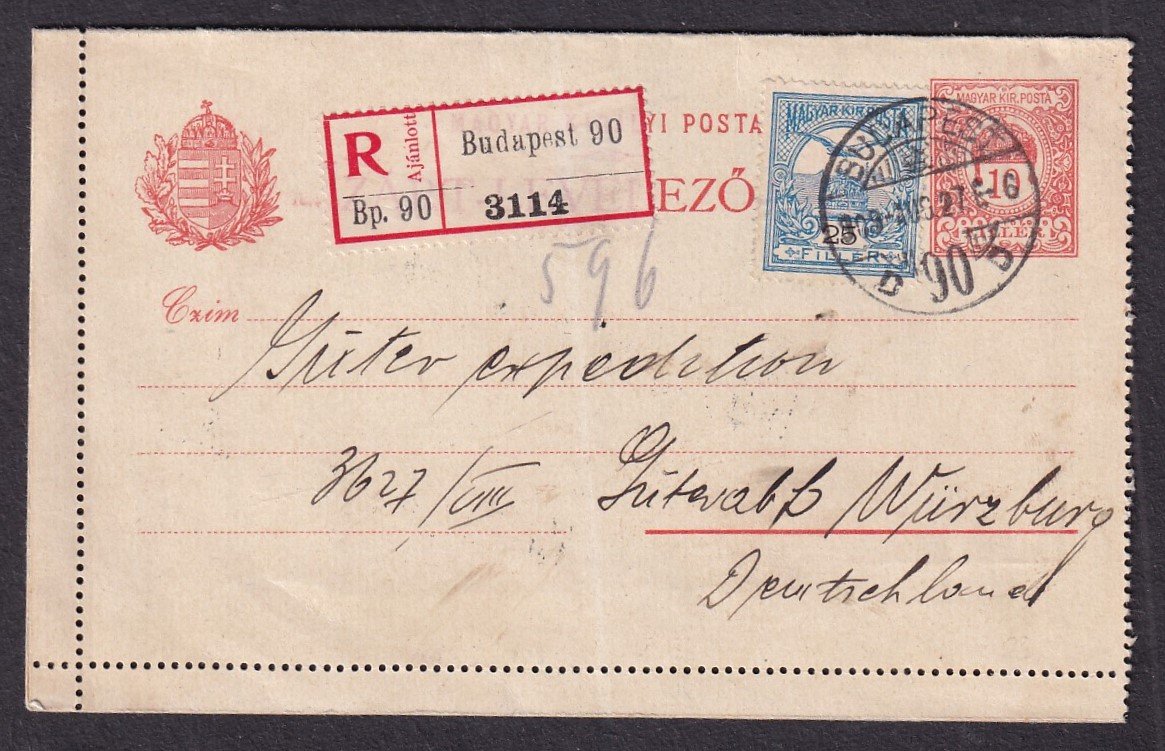 R
Ajánlott
Budapest 90
Bp. 90
3114
YI POSTA
EZŐ
MAGYAR KIR. POS
25
FILLER
MAGYAR KIR. POSTA
10
BUDAPEST
D 90 D
596
Czim
Güter expedition
3627/VIII
Würzburg
Deutschland